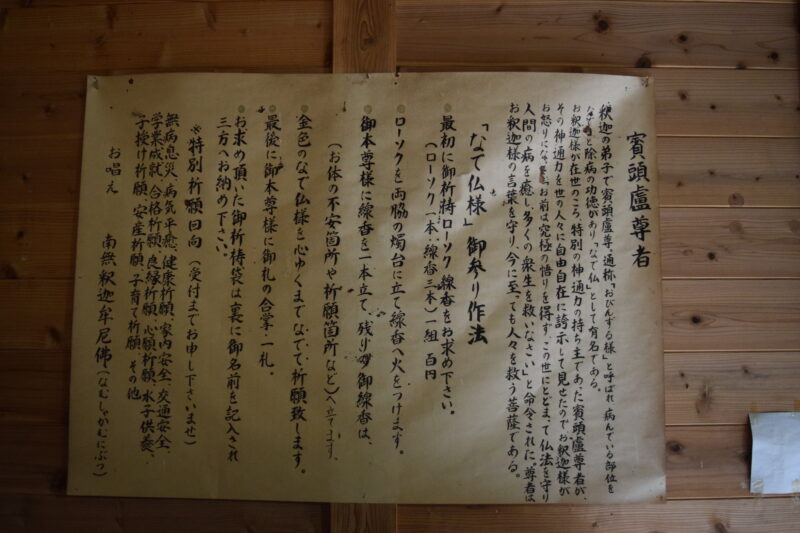 賓頭盧尊者
釈迦の弟子で賓頭盧尊、通称「おびんずる様」と呼ばれ 病んでいる部位を
なでると除病の功徳があり「なで仏」として有名である。
お釈迦様が在世のころ、特別の神通力の持ち主であった賓頭盧尊者が、
その神通力を世の人々に自由自在に誇示して見せたのでお釈迦様が
お怒りになり、お前は究極の悟りを得ず、この世にとどまって仏法を守り
人間の病を癒し、多くの衆生を救いなさい」と命令された。尊者は
お釈迦様の言葉を守り、今に至っても人々を救う菩薩である。
「なで仏様」御参り作法
最初に御祈祷ローソク、線香をお求め下さい。
(ローソク一本、線香三本)一組 百円
ローソクを両脇の燭台に立て線香へ火をつけます。
御本尊様に線香を一本立て、残りの御線香は、
(お体の不安箇所や祈願箇所など)へ立てます、
金色のなで仏様を心ゆくまでなでて祈願致します。
最後に御本尊様に御札の合掌・一礼。
お求め頂いた御祈祷袋は裏に御名前を記入され
三方へお納め下さい。
※特別祈願回向(受付までお申し下さいませ)
無病息災、病気平癒、健康祈願、家内安全、交通安全、
学業成就、合格祈願、良縁祈願、心願祈願、水子供養、
子授け祈願、安産祈願、子育て祈願、その他
お唱え 南無釈迦牟尼佛(なむしゃかむにぶつ)